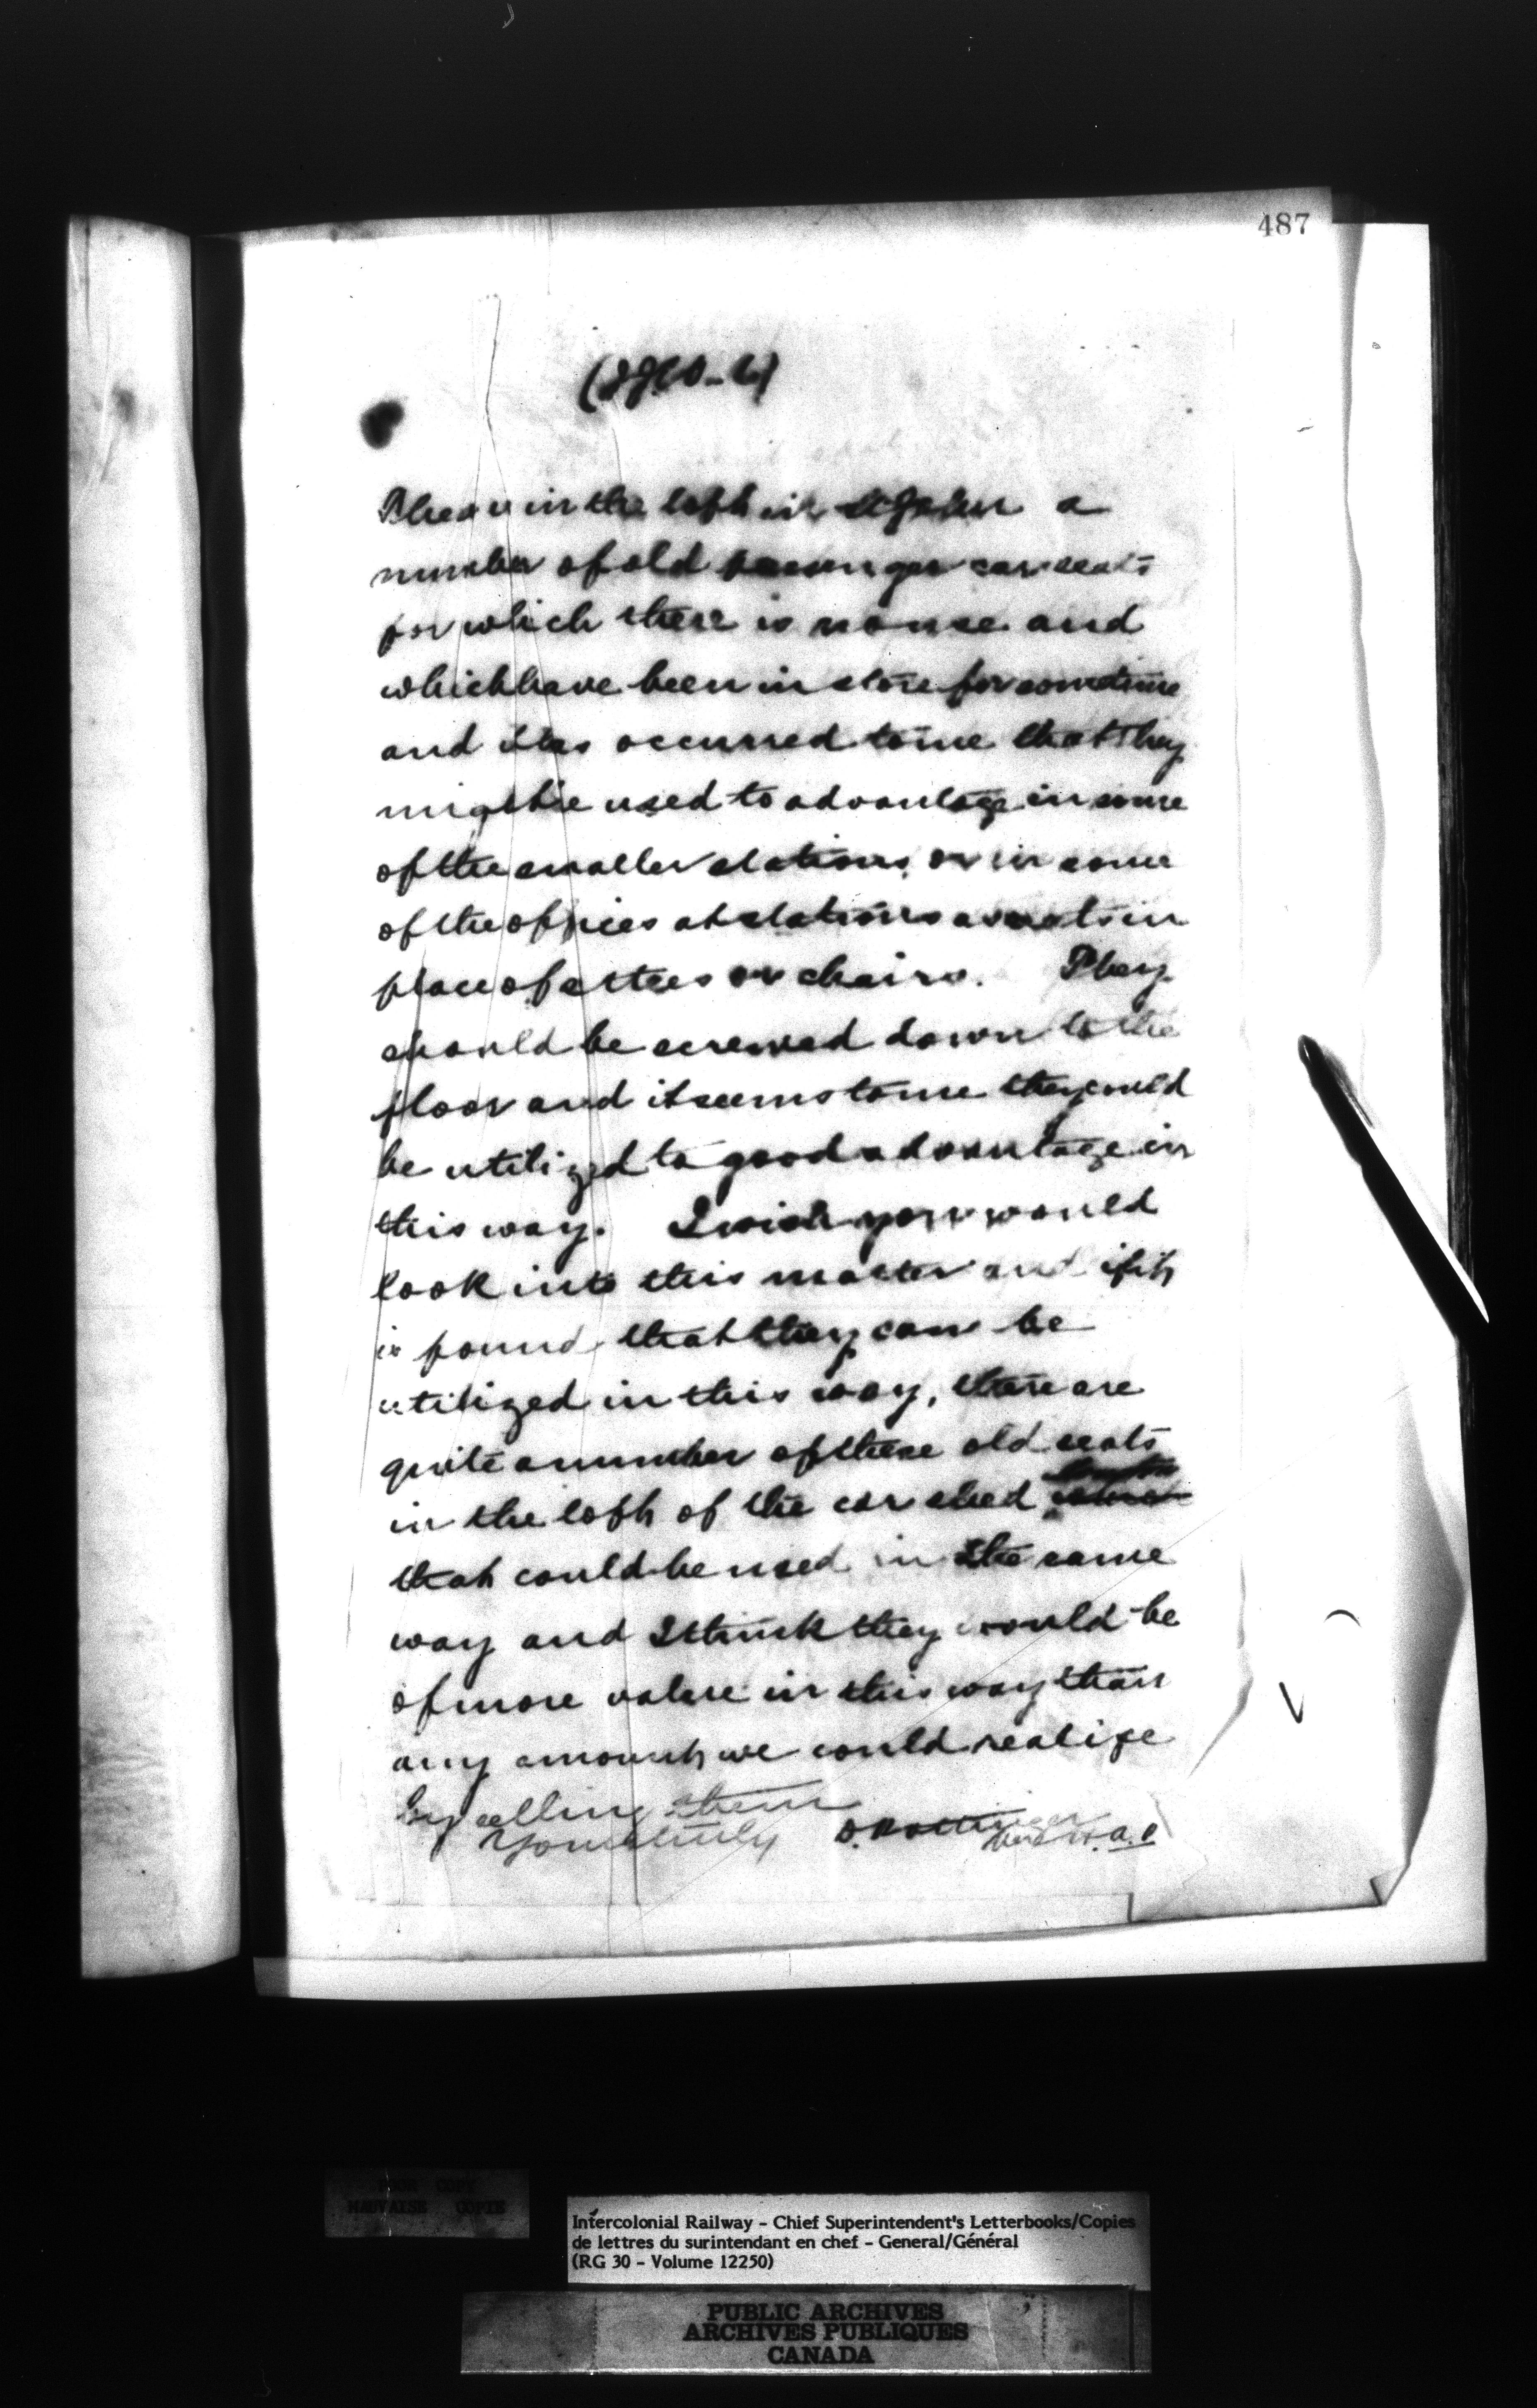 487
There is in the loft in St John a
number of old passenger car seats
for which there is no use and
which have been in store for sometime
and it has occurred to me that they
might be used to advantage in some
of the smaller stations, or in some
of the offices at stations as seats in
place of settees or chairs. They
should be screwed down to the
floor and it seems to me they could
be utilized to good advantage in
this way. I wish you would
look into this matter and if it
is found that they can be
utilized in this way, there are
quite a number of these old seats
in the loft of the car shed
that could be used in the same
way and I think they would be
of more value in this way than
any amount we could realize
by selling them
Yours truly D. Pottinger
POOR COPY
MAUVAISE COPIE
Intercolonial Railway - Chief Superintendent's Letterbooks/Copies
de lettres du surintendant en chef - General/Général
(RG 30 - Volume 12250)
PUBLIC ARCHIVES
ARCHIVES PUBLIQUES
CANADA